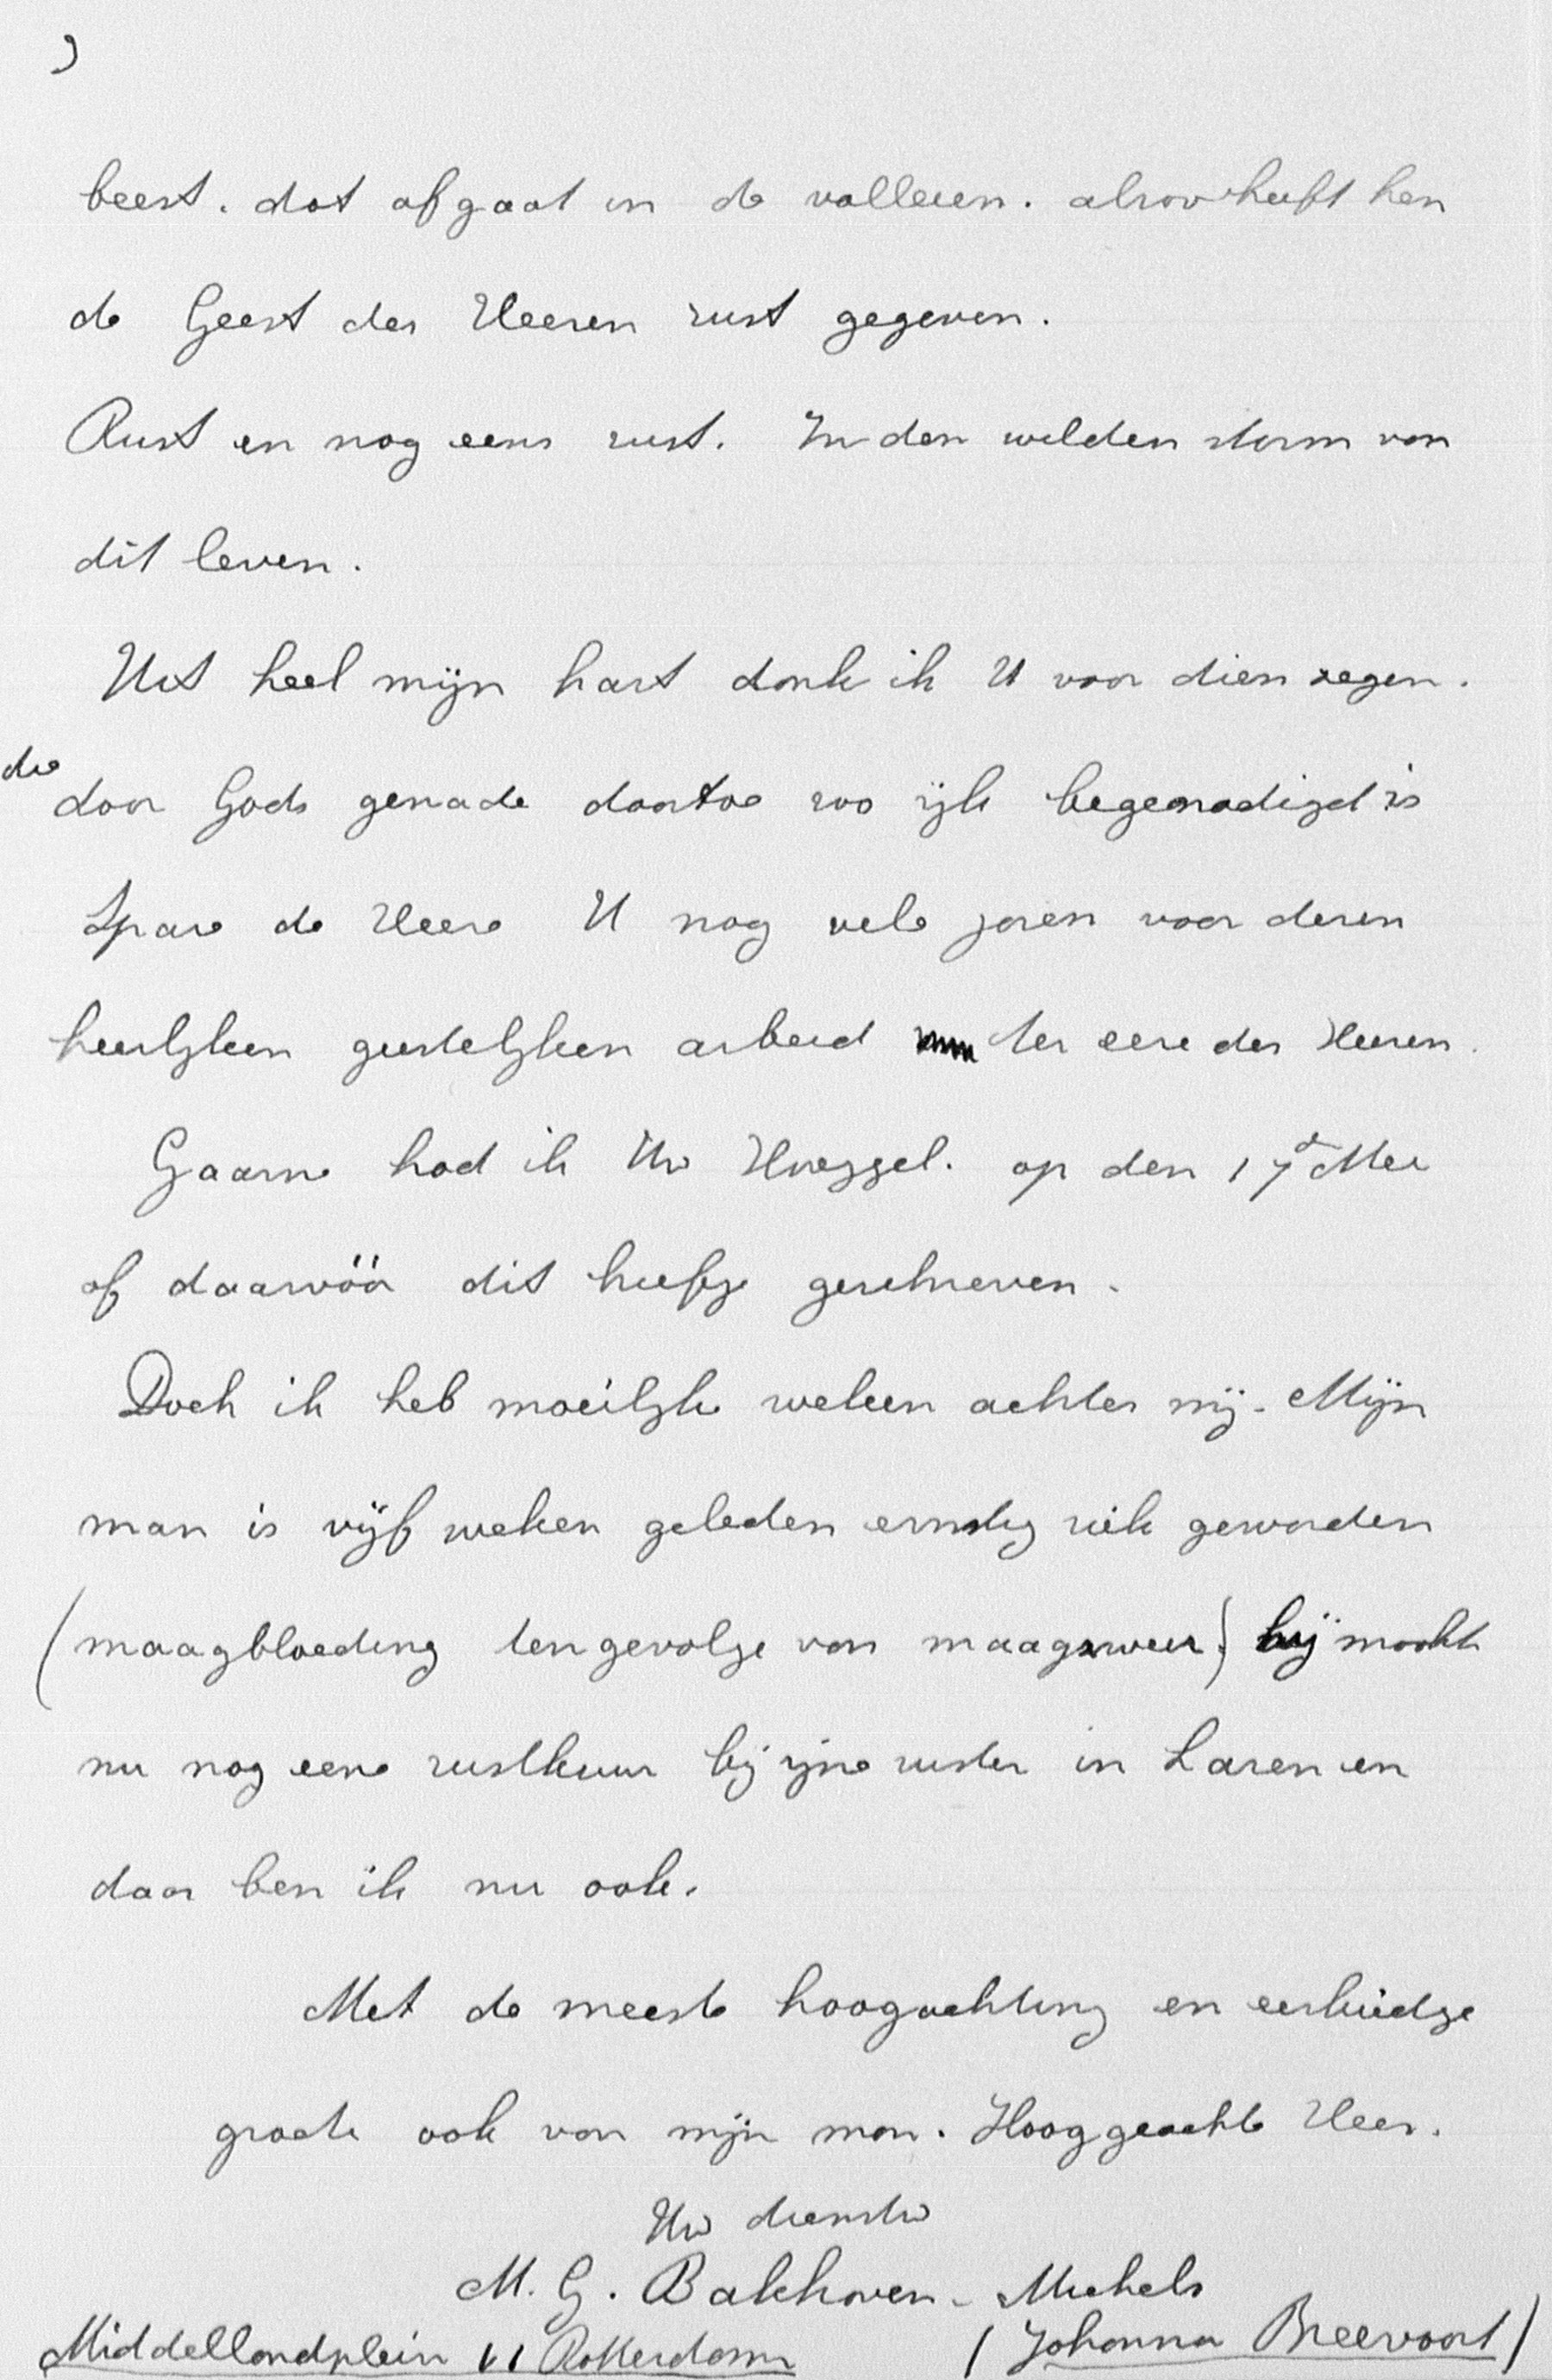 beest. dat afgaat in de valleien. alzoo heeft hen
de Geest des Heeren rust gegeven.
Rust en nog eens rust. In den wilden storm van
dit leven.
Uit heel mijn hart dank ik U voor dien zegen.
die
door Gods genade daartoe zoo rijk begenadigd is
Spare de Heere U nog vele jaren voor dezen
heerlijken geestelijken arbeid ter eere des Heeren.
Gaarne had ik Uw HoogEgel. op den 17de Mei
of daarvóór dit briefje geschreven.
Doch ik heb moeilijke weken achter mij. Mijn
man is vijf weken geleden ernstig ziek geworden
(maagbloeding tengevolge van maagzweer) hij maakt
nu nog eene rustkuur bij zijne zuster in Laren en
daar ben ik nu ook.
Met de meeste hoogachting en eerbiedige
groete ook van mijn man. Hooggeachte Heer.
Uw dienstw
M. G. Bakhoven - Michels
Middellandplein 11 Rotterdam (Johanna Breevoort)